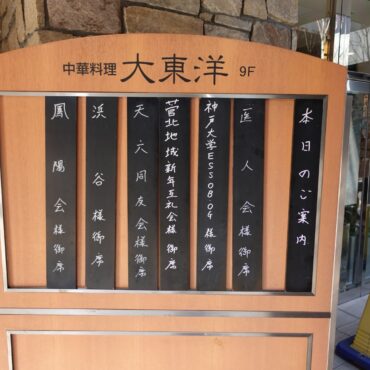 中華料理 大東洋 9F
本日のご案内
医人会様御席
神戸大学ESSOBOG様御席
菅北地域新年互礼会様御席
天六同友会様御席
浜谷様御席
鳳陽会様御席